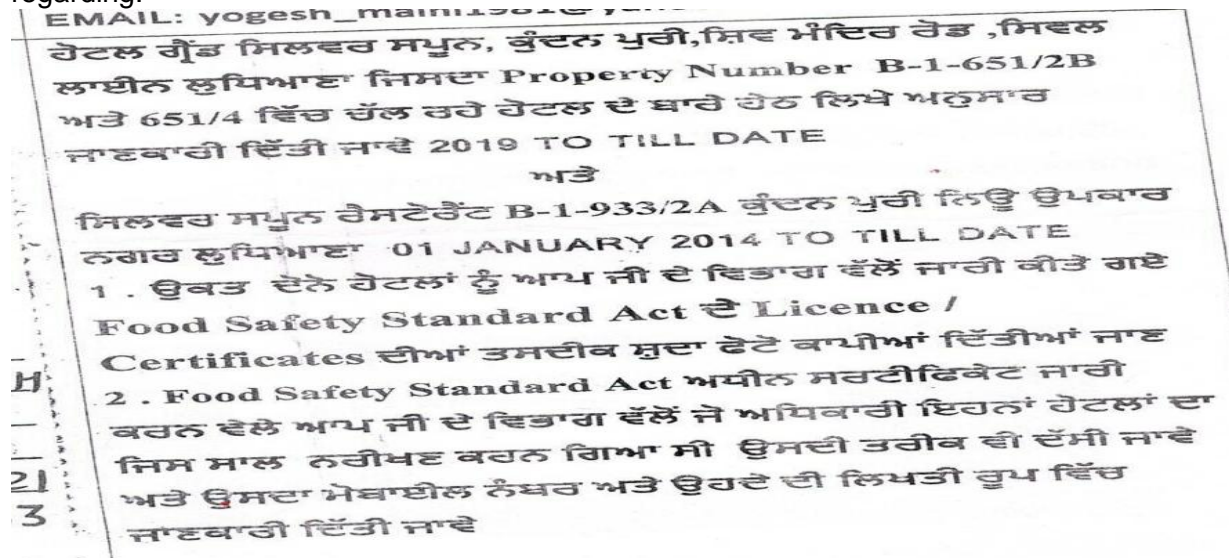 regarding.
EMAIL: yogesh_maini1981@
ਹੋਟਲ ਗ੍ਰੈਂਡ ਸਿਲਵਰ ਸਪੂਨ, ਕੁੰਦਨ ਪੁਰੀ,ਸ਼ਿਵ ਮੰਦਿਰ ਰੋਡ ,ਸਿਵਲ
ਲਾਈਨ ਲੁਧਿਆਣਾ ਜਿਸਦਾ Property Number B-1-651/2B
ਅਤੇ 651/4 ਵਿੱਚ ਚੱਲ ਰਹੇ ਹੋਟਲ ਦੇ ਬਾਰੇ ਹੇਠ ਲਿਖੇ ਅਨੁਸਾਰ
ਜਾਣਕਾਰੀ ਦਿੱਤੀ ਜਾਵੇ 2019 TO TILL DATE
ਅਤੇ
ਸਿਲਵਰ ਸਪੂਨ ਰੈਸਟੋਰੈਂਟ B-1-933/2A ਕੁੰਦਨ ਪੁਰੀ ਨਿਊ ਉਪਕਾਰ
ਨਗਰ ਲੁਧਿਆਣਾ 01 JANUARY 2014 TO TILL DATE
1 . ਉਕਤ ਦੋਨੋ ਹੋਟਲਾਂ ਨੂੰ ਆਪ ਜੀ ਦੇ ਵਿਭਾਗ ਵੱਲੋਂ ਜਾਰੀ ਕੀਤੇ ਗਏ
Food Safety Standard Act ਦੇ Licence /
Certificates ਦੀਆਂ ਤਸਦੀਕ ਸ਼ੁਦਾ ਫੋਟੋ ਕਾਪੀਆਂ ਦਿੱਤੀਆਂ ਜਾਣ
2 . Food Safety Standard Act ਅਧੀਨ ਸਰਟੀਫਿਕੇਟ ਜਾਰੀ
ਕਰਨ ਵੇਲੇ ਆਪ ਜੀ ਦੇ ਵਿਭਾਗ ਵੱਲੋਂ ਜੋ ਅਧਿਕਾਰੀ ਇਹਨਾਂ ਹੋਟਲਾਂ ਦਾ
ਜਿਸ ਸਾਲ ਨਰੀਖਣ ਕਰਨ ਗਿਆ ਸੀ ਉਸਦੀ ਤਰੀਕ ਵੀ ਦੱਸੀ ਜਾਵੇ
ਅਤੇ ਉਸਦਾ ਮੋਬਾਈਲ ਨੰਬਰ ਅਤੇ ਉਹਦੇ ਦੀ ਲਿਖਤੀ ਰੂਪ ਵਿੱਚ
ਜਾਣਕਾਰੀ ਦਿੱਤੀ ਜਾਵੇ
H
21
3